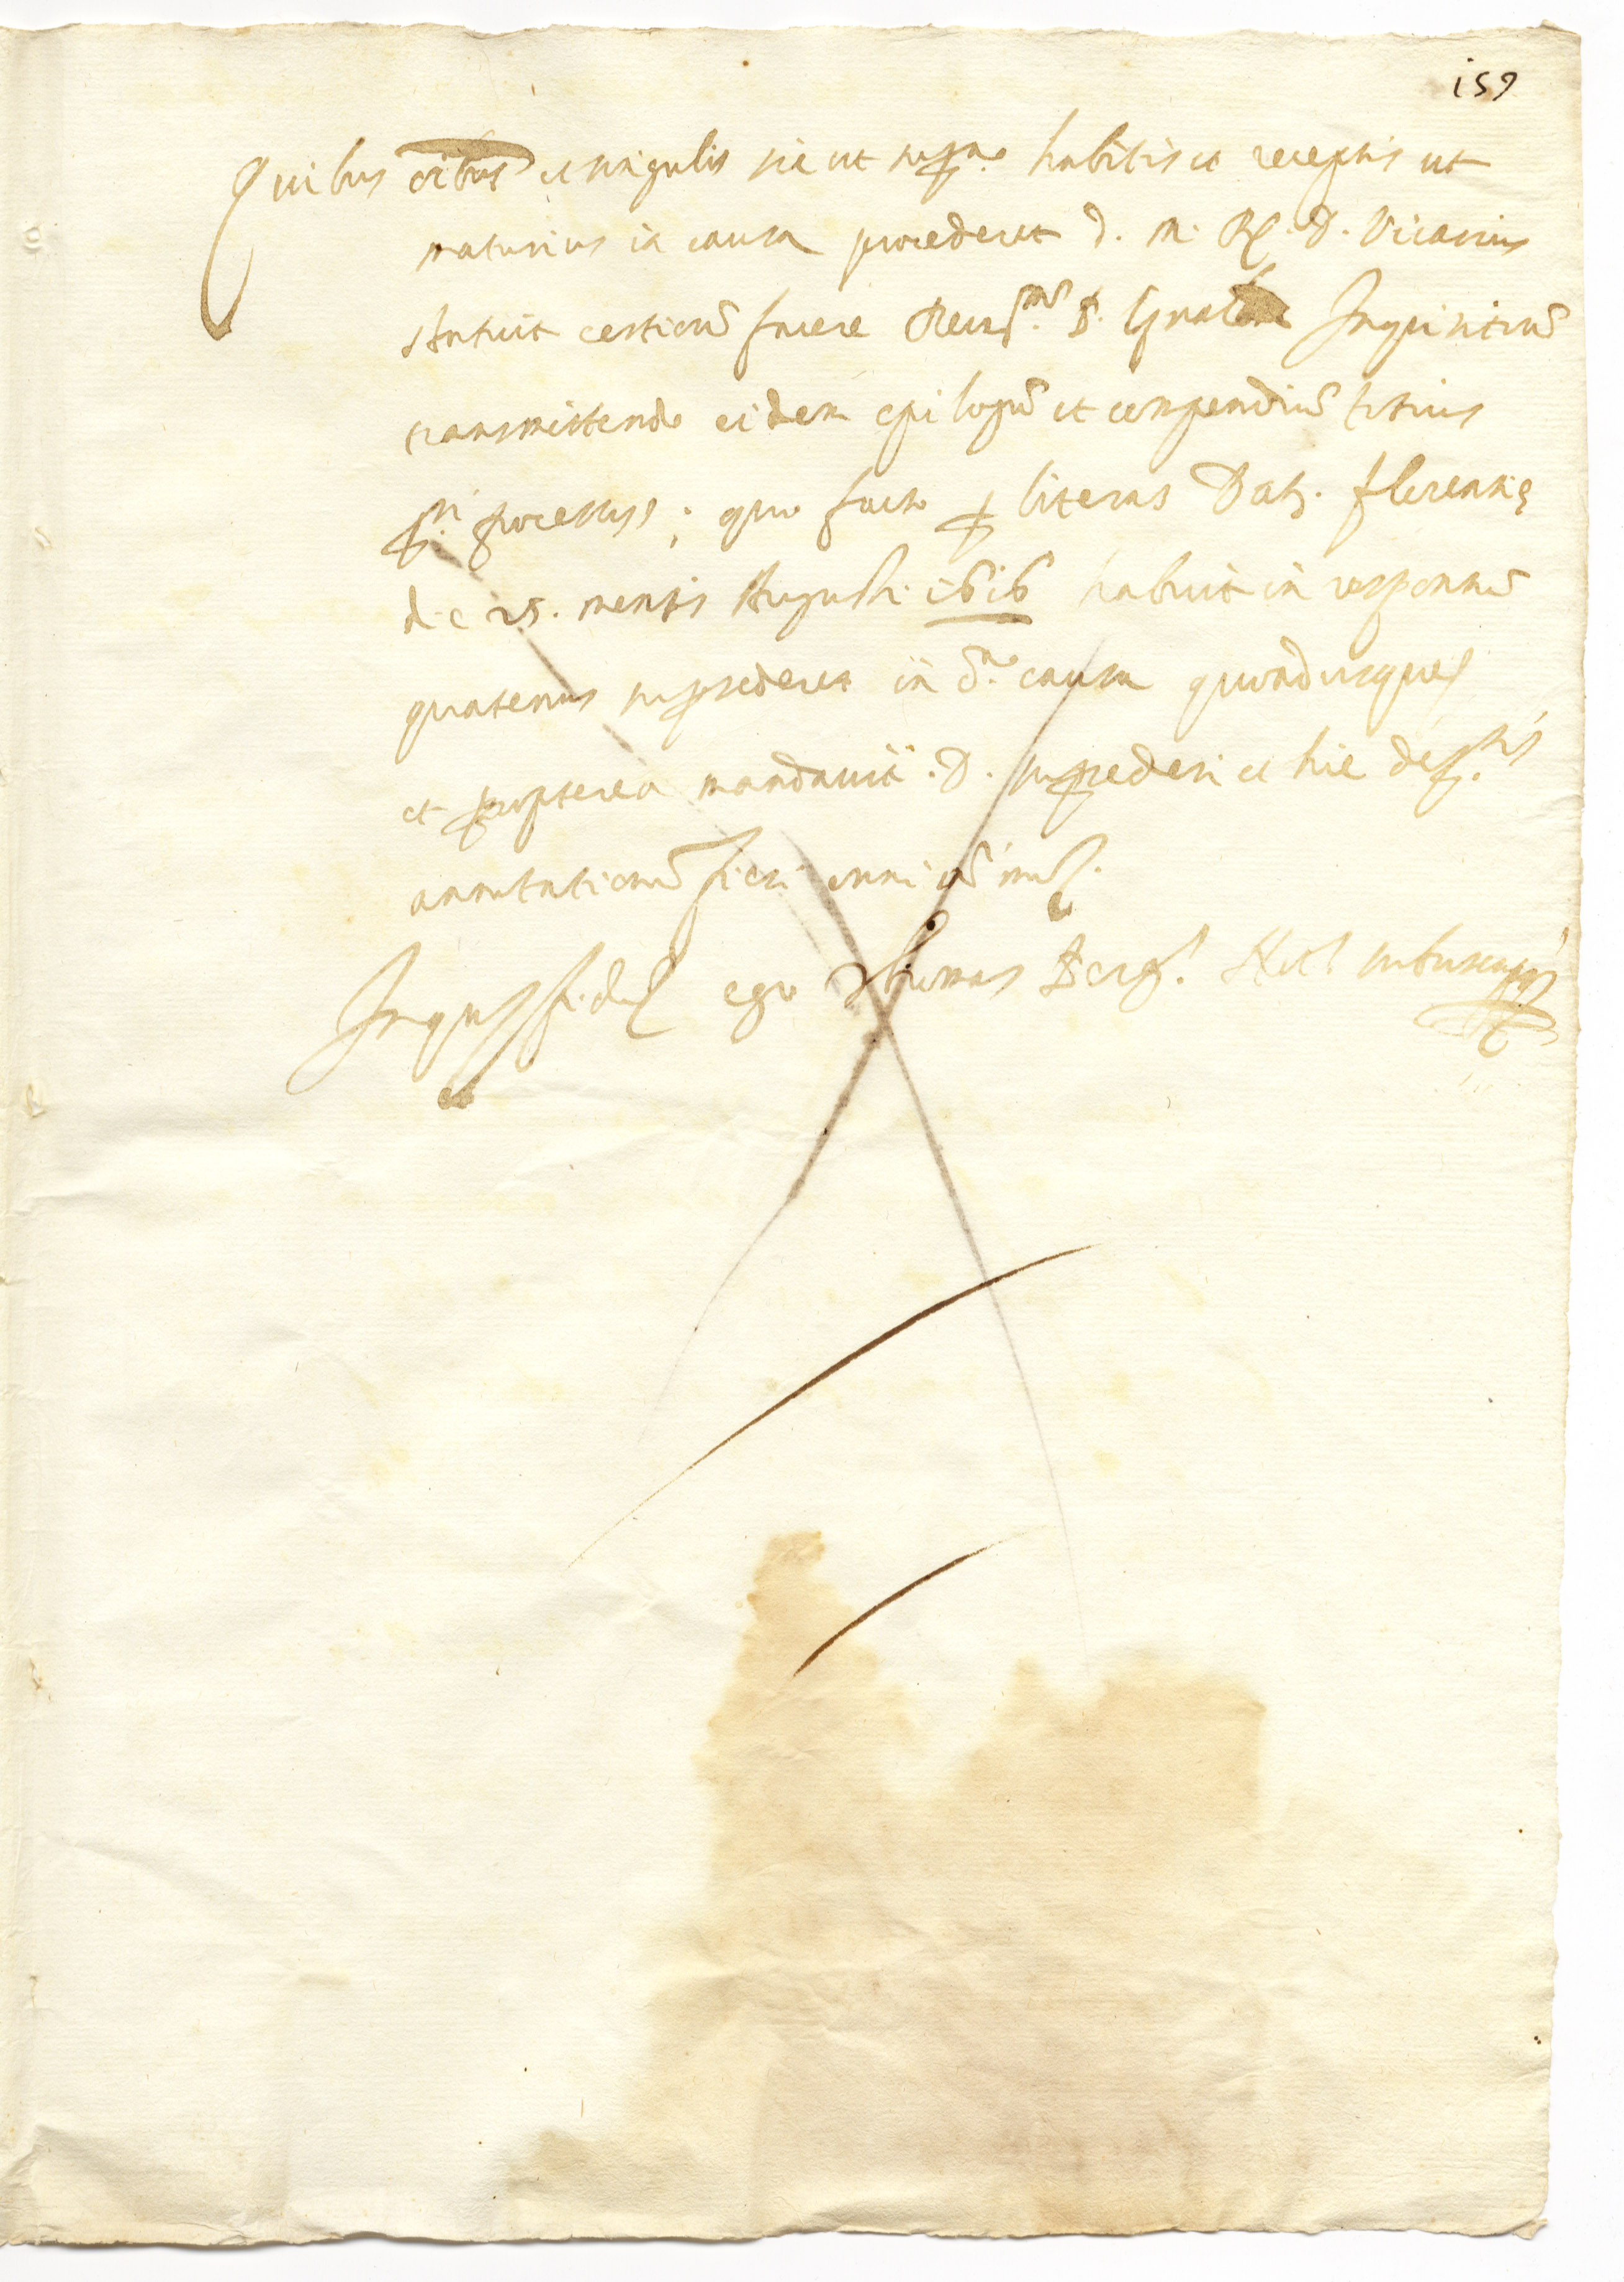 159
Quibus oibus et singulis sic ut supra habitis et receptis ut
maturius in causa procederet d. M. R. D. Vicarius
statuit certiorẽ facere Reur. D. Gnalem Inquisitorẽ
transmittendo eidem epilogũ et compendiũ totius
pñti processus; quo facto p literas Dat. florentię
die 25. mensis Augusti 1616 habuit in responsũ
quatenus supsederet in d.ª causa quoadusque
et propterea mandavit D. supsederi et hic
annotationẽ fieri omni
Inquor fidẽ ego Thomas Not. subscripsi